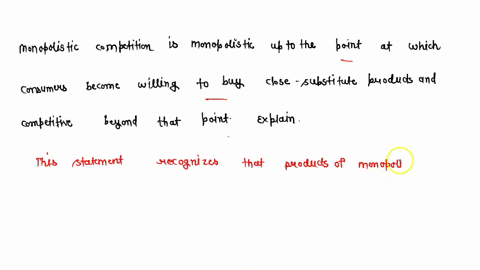 Monopolistic competition is monopolistic up to the point at which
consumers become willing to buy close-substitute products and
competitive beyond that point. Explain.
This statement recognizes that products of monopoli